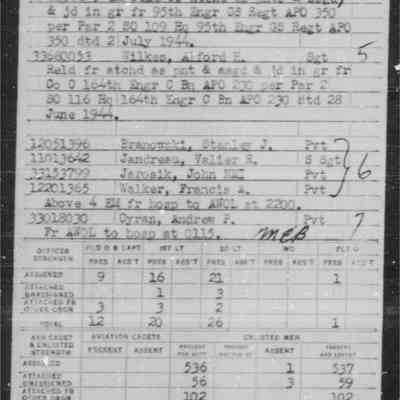 & jd in gr fr 95th Engr GS Regt APO 350
per Par 2 SO 109 Hq 95th Engr GS Regt
APO 350 dtd 2 July 1944.
33680053 Wilkes, Alford H. Sgt 5
Reld fr atchd as pnt & asgd & jd in gr fr
Co C 164th Engr C Bn APO 230 per Par 2
SO 116 Hq 164th Engr C Bn APO 230 dtd 28
June 1944.
12051396 Branowski, Stanley J. Pvt
11013642 Jandreau, Valier R. S Sgt
33153799 Jarosik, John NMI Pvt 6
12201365 Walker, Francis A. Pvt
Above 4 EM fr hosp to AWOL at 2200.
33018030 Cyran, Andrew P. Pvt 7
Fr AWOL to hosp at 0115. MEB
OFFICER STRENGTH 1ST LT 2D LT WO FLT O
PRES ABS'T PRES ABS'T PRES ABS'T PRES ABS'T PRES ABS'T
ASSIGNED 9 16 21 1
ATTACHED UNASSIGNED 1 3
ATTACHED FR OTHER ORGN 3 3 2
TOTAL 12 20 26 1
AVN CADET & ENLISTED STRENGTH AVIATION CADETS ENLISTED MEN
PRESENT ABSENT PRESENT FOR DUTY ABSENT PRESENT AND ABSENT
ASSIGNED 536 1 537
ATTACHED UNASSIGNED 56 3 59
ATTACHED FR OTHER ORGN 102 102